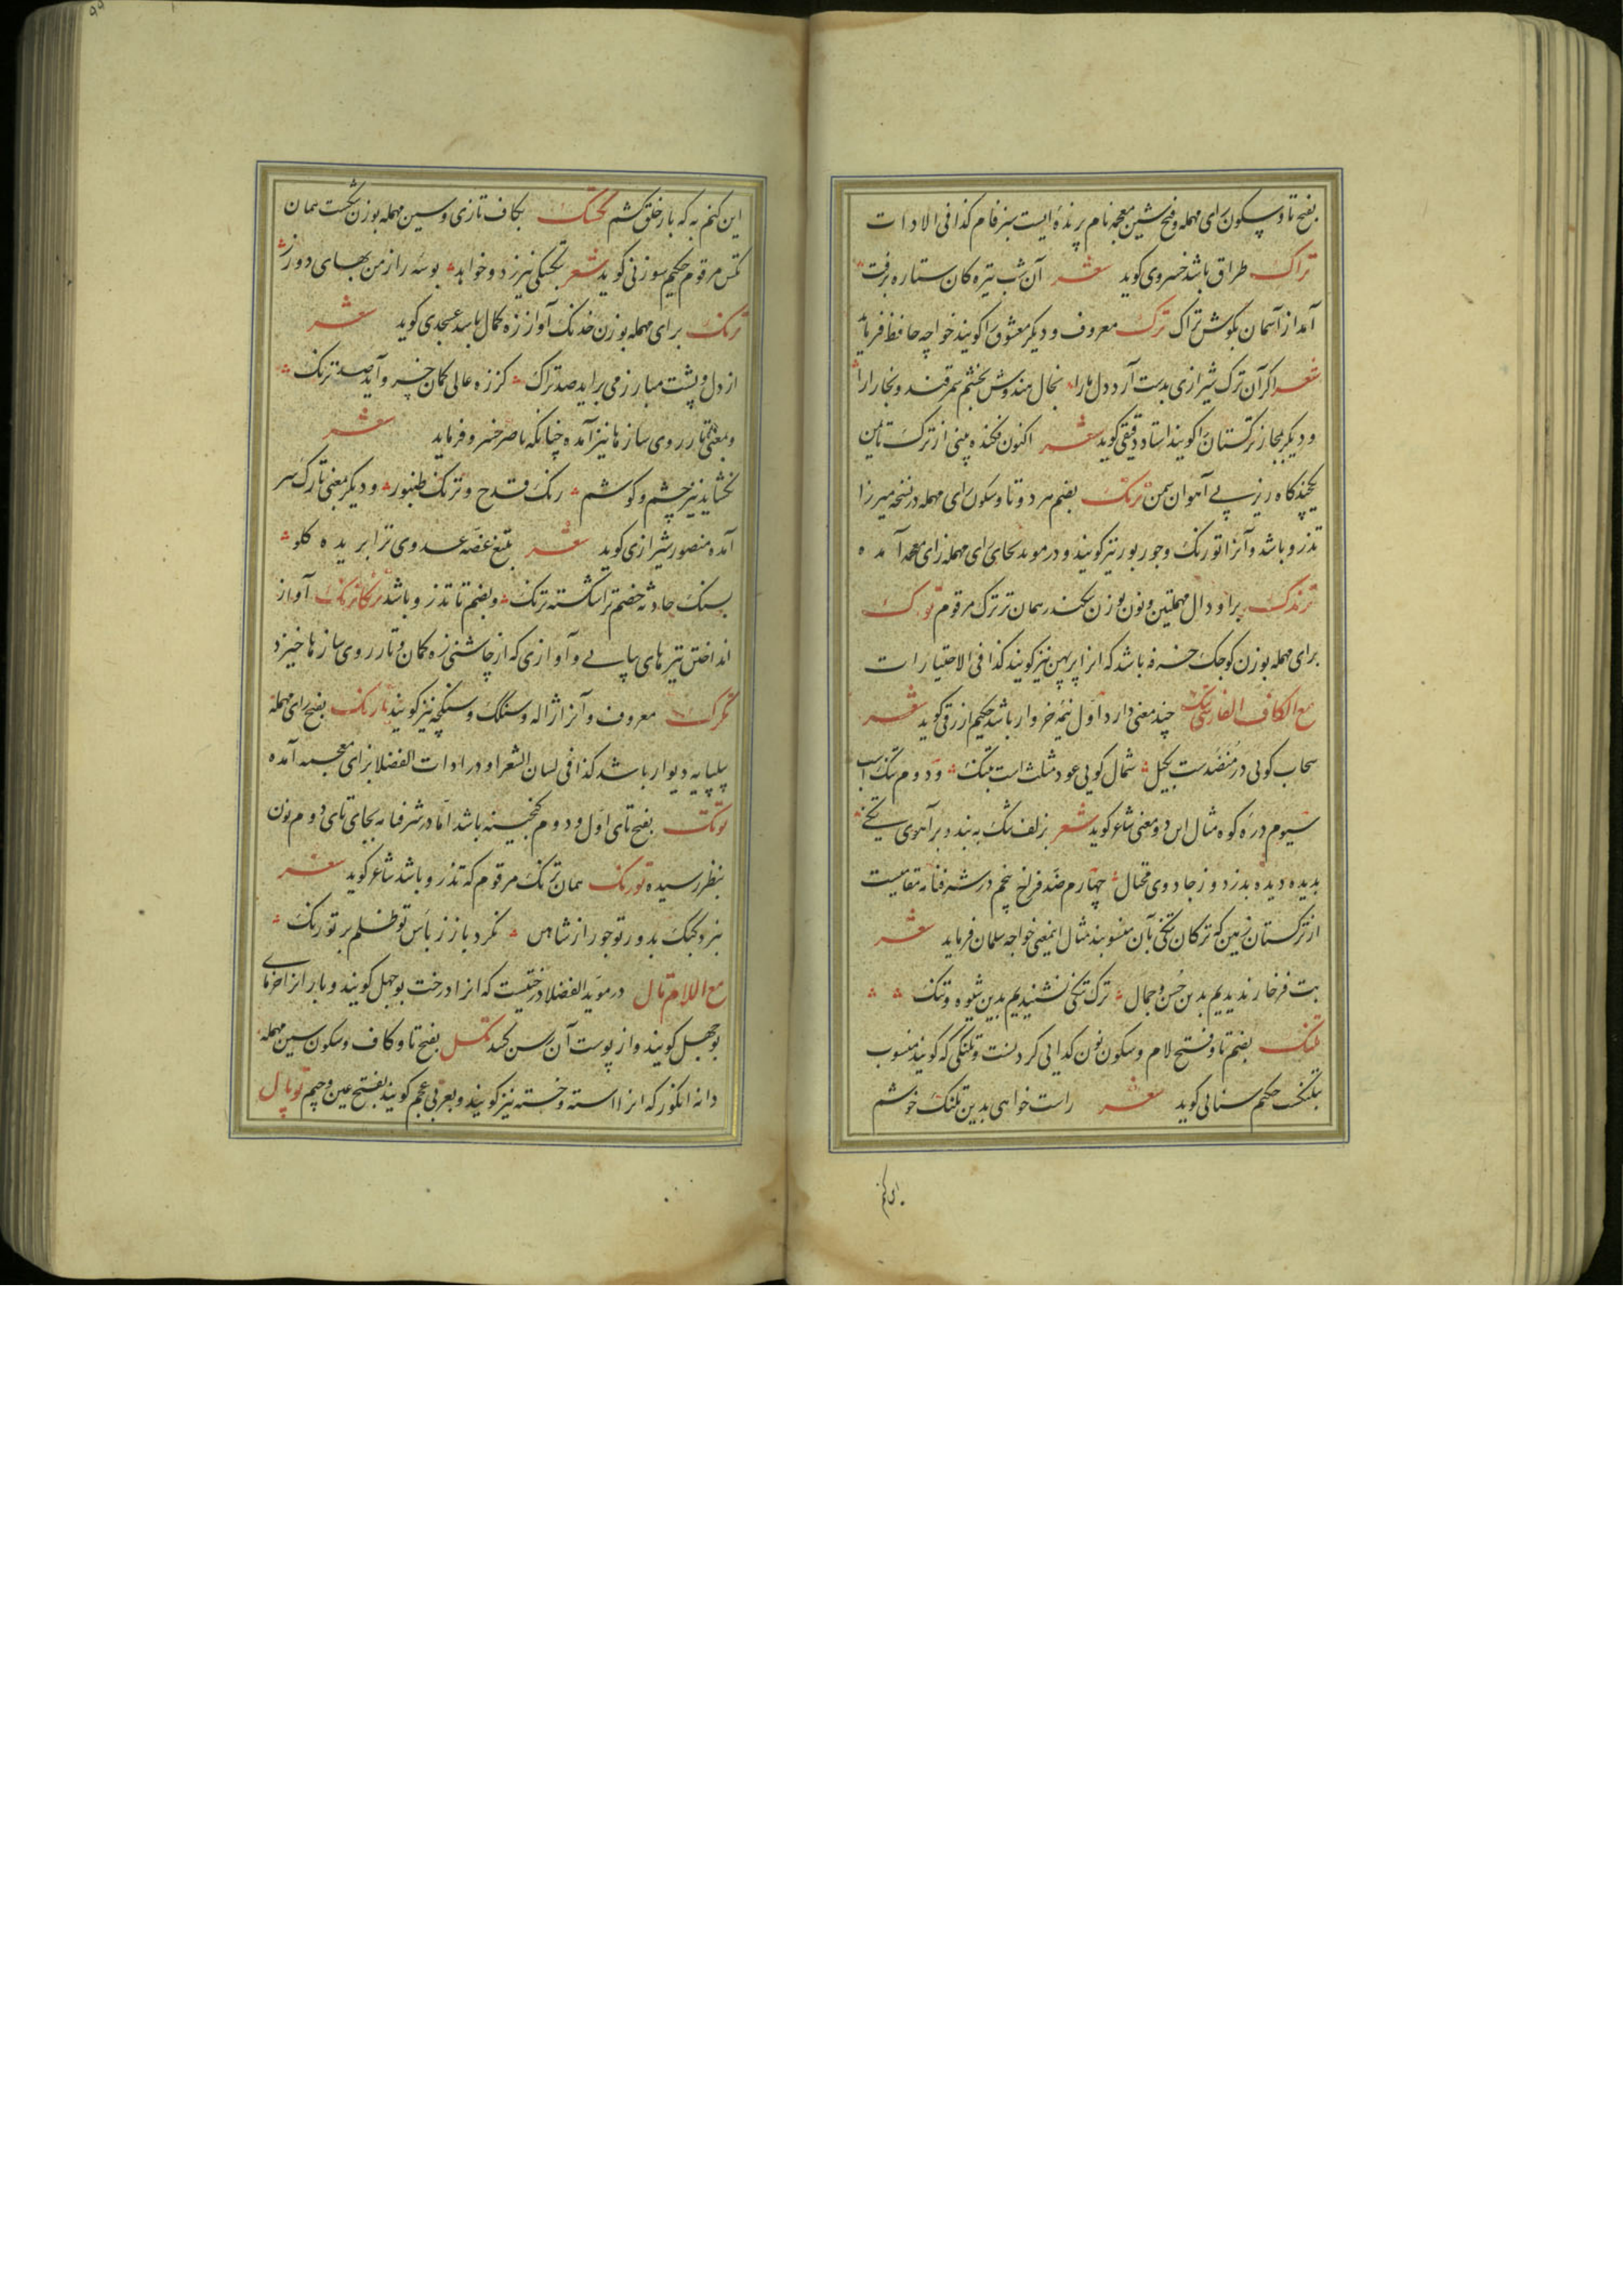 بفتح تا و سکون رای مهمله و فتح شین معجمه نام پرنده ایست سبز فام کذا فی الادات
تراک طراق باشد خسروی کوید شعر آن شب تیره کان ستاره برفت
آمد از آسمان بکوش تراک ترک معروف و دیکر معشوق را کویند خواجه حافظ فرماید
شعر اکر آن ترک شیرازی بدست آرد دل ما را بخال هندوش بخشم سمرقند و بخارا را
و دیکر بمجاز ترکستان را کویند استاد دقیقی کوید شعر اکنون فکنده بینی از ترک تا یمن
یکچند کاه زیر پی آهوان سمن ترنک بضم هر دو تا و سکون رای مهمله در نسخه میرزا
تذرو باشد و آنرا تورنک و جوربور نیز کویند و در موید بجای رای مهمله زای معجمه آمده
ترندک برا و دال مهملتین و نون بوزن بکندر همان ترترک مرقوم تورک
برای مهمله بوزن کوجک خرفه باشد که انرا پرپهن نیز کویند کذا فی الاختیارات
مع الکاف الفارسی تنک چند معنی دارد اول نیمه خروار باشد حکیم ازرقی کوید شعر
سحاب کویی در منضدست بکیل شمال کویی عود مثلث است بتنک و دوم تنک اسب
سیوم دره کوه مثال این دو معنی شاعر کوید شعر بزلف تنک ببندد بر آهوی تنکی
بدیده دیده بدزدد ز جادوی محتال چهارم ضد فراخ پنجم در شرفنامه مقامیست
از ترکستان زمین که ترکان تنکی بآن منسوبند مثال اینمعنی خواجه سلمان فرماید شعر
بت فرخار ندیدیم بدین حسن و جمال ترک تنکی نشنیدیم بدین شیوه و تنک
تلنک بضم تا و فتح لام و سکون نون کدایی کردنست و تلنکی که کویند منسوب
بتلنکست حکیم سنایی کوید شعر راست خواهی بدین تلنک خوشم
این کنم به که بار خلق کشم تکسک بکاف تازی و سین مهمله بوزن نخست همان
تکس مرقوم حکیم سوزنی کوید شعر تکسکی نیرزد و خواهد بوسه را از من بهای دو رز
ترنک برای مهمله بوزن خدنک آواز زه کمان باشد عسجدی کوید شعر
از دل و پشت مبارز می براید صد تراک کز زه عالی کمان خسرو آید صد ترنک
و بمعنی تار روی سازها نیز آمده چنانکه ناصر خسرو فرماید شعر
نخشاید نیز چشم و کوشم رنک قدح و ترنک طنبور و دیکر بمعنی تارک سر
آمده منصور شیرازی کوید شعر بتیغ غصه عدوی ترا بریده کلو
بسنک حادثه خصم ترا شکسته ترنک و بضم تا تذرو باشد ترنکاترنک آواز
انداختن تیرهای پیاپی و آوازی که از چاشنی زه کمان و تار روی سازها خیزد
تکرک معروف و آنرا ژاله و سنکک و سنکچه نیز کویند تارنک بفتح رای مهمله
پیلپایه دیوار باشد کذا فی لسان الشعرا و در ادات الفضلا بزای معجمه آمده
توتک بفتح تای اول و دوم کنجینه باشد اما در شرفنامه بجای تای دوم نون
بنظر رسیده تورنک همان ترنک مرقوم که تذرو باشد شاعر کوید شعر
نبرد کبک بدور تو جور از شاهین نکرد باز ز بأس تو ظلم بر تورنک
مع اللام تال در موید الفضلا درختیست که انرا درخت بوجهل کویند و بار انرا خرمای
بوجهل کویند و از پوست آن رسن کنند تکسل بفتح تا و کاف و سکون سین مهمله
دانه انکور که انرا استه و خسته نیز کویند و بعربی عجم کویند بفتح عین و جیم توبال